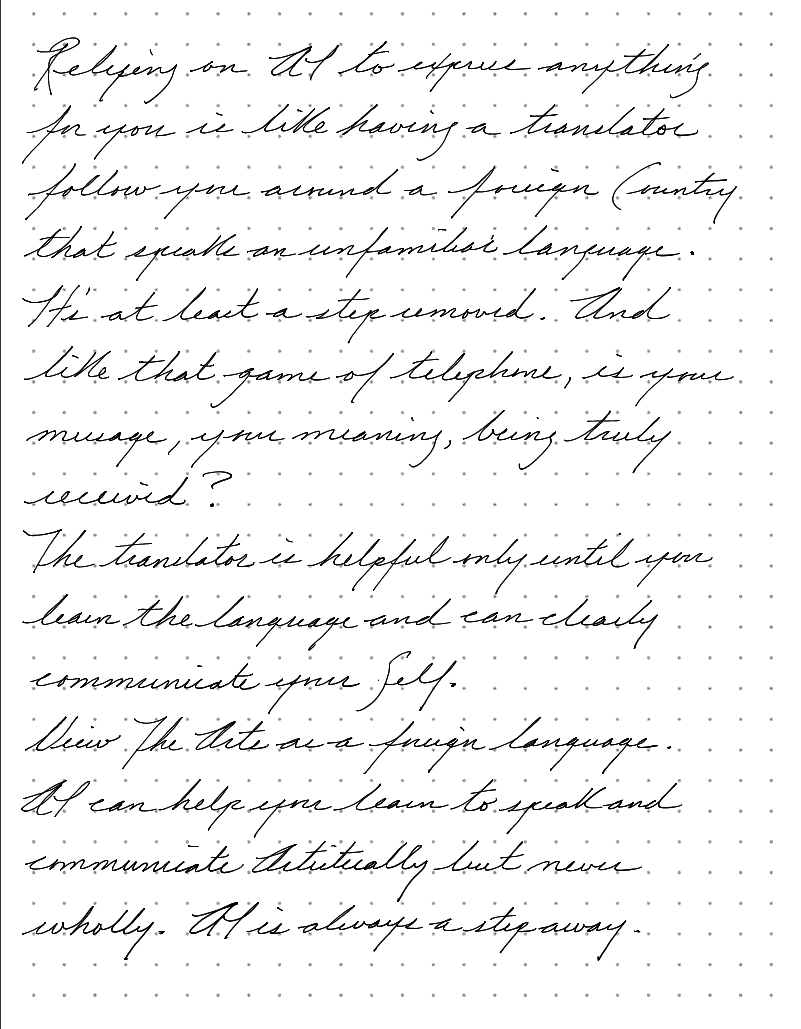 Relying on AI to express anything
for you is like having a translator
follow you around a foreign Country
that speaks an unfamiliar language.
It's at least a step removed. And
like that game of telephone, is your
message, your meaning, being truly
received?
The translator is helpful only until you
learn the language and can clearly
communicate your Self.
View The Arts as a foreign language.
AI can help you learn to speak and
communicate Artistically but never
wholly. AI is always a step away.